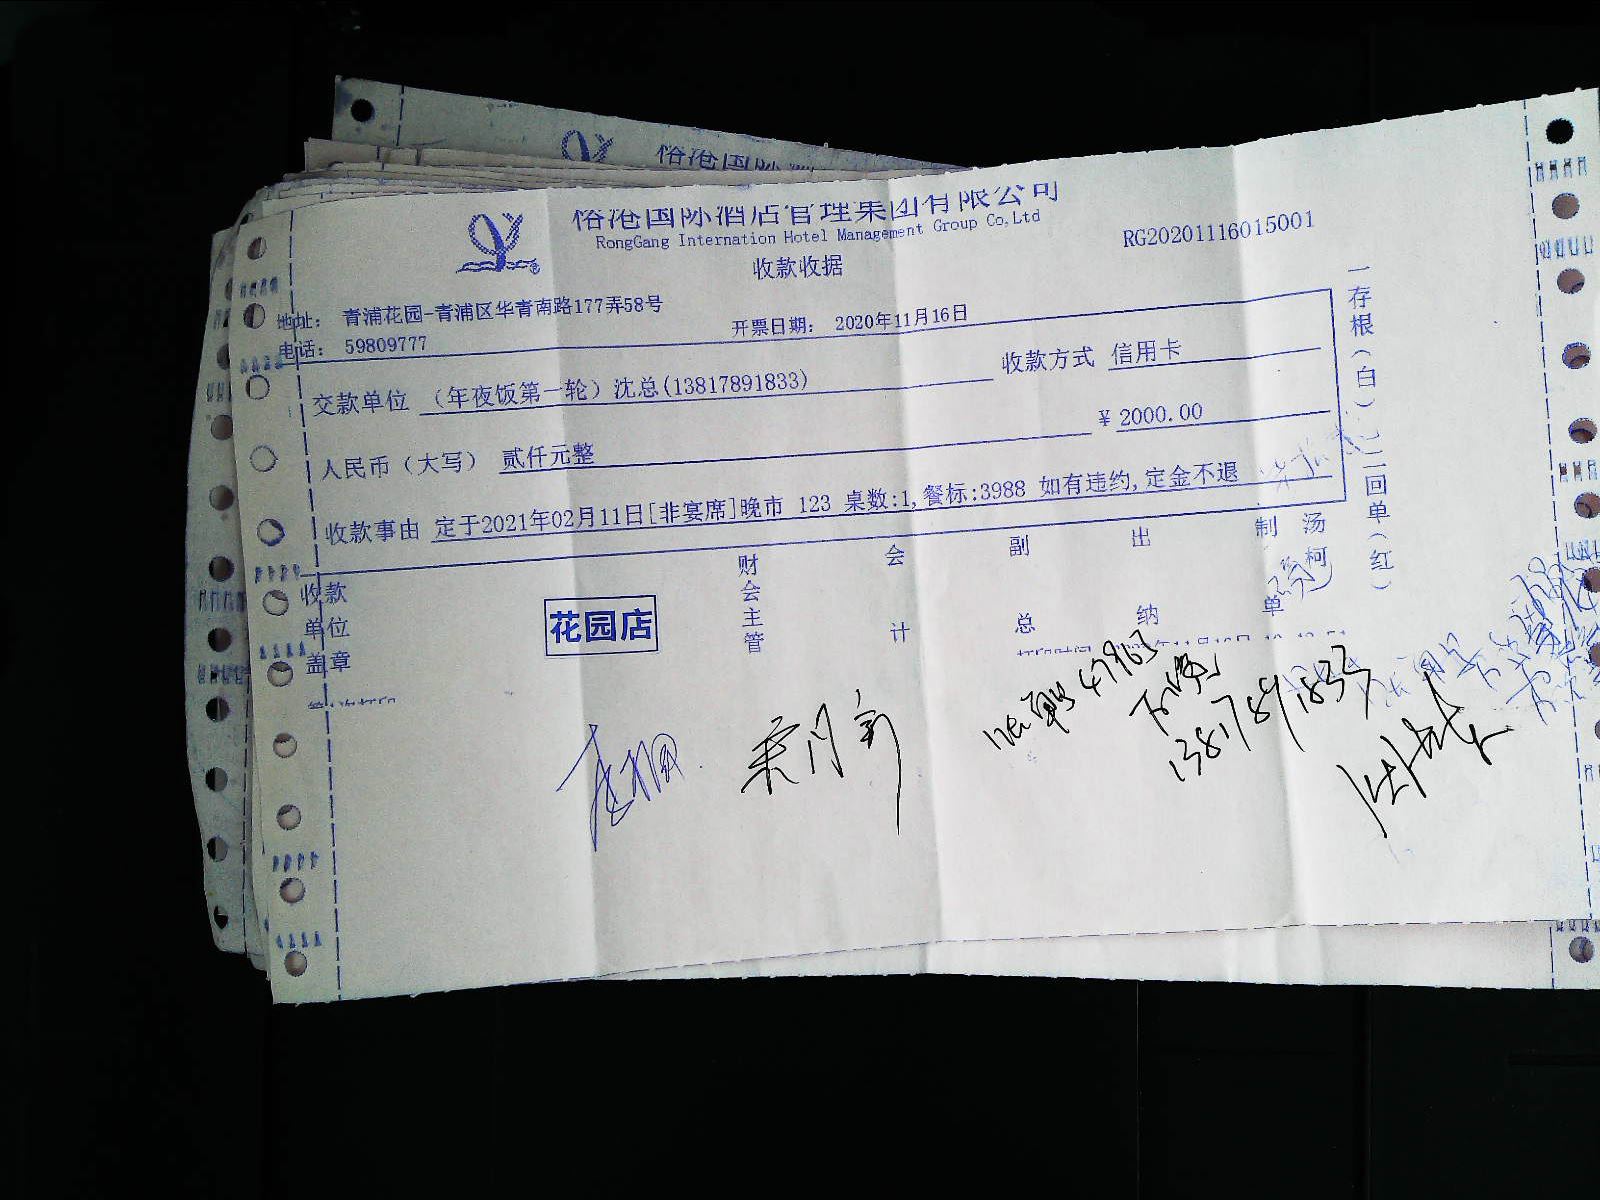 裕港国际
裕港国际酒店管理集团有限公司
RongGang Internation Hotel Management Group Co,Ltd
收款收据
RG20201116015001
地址： 青浦花园-青浦区华青南路177弄58号
电话： 59809777
开票日期： 2020年11月16日
交款单位 （年夜饭第一轮）沈总(13817891833)
收款方式 信用卡
人民币（大写） 贰仟元整
￥ 2000.00
收款事由 定于2021年02月11日[非宴席]晚市 123 桌数:1,餐标:3988 如有违约,定金不退
一存根（白） 二回单（红）
收款单位盖章
花园店
财会主管
会计
副总
出纳
制单
汤柯
47963
13817891833